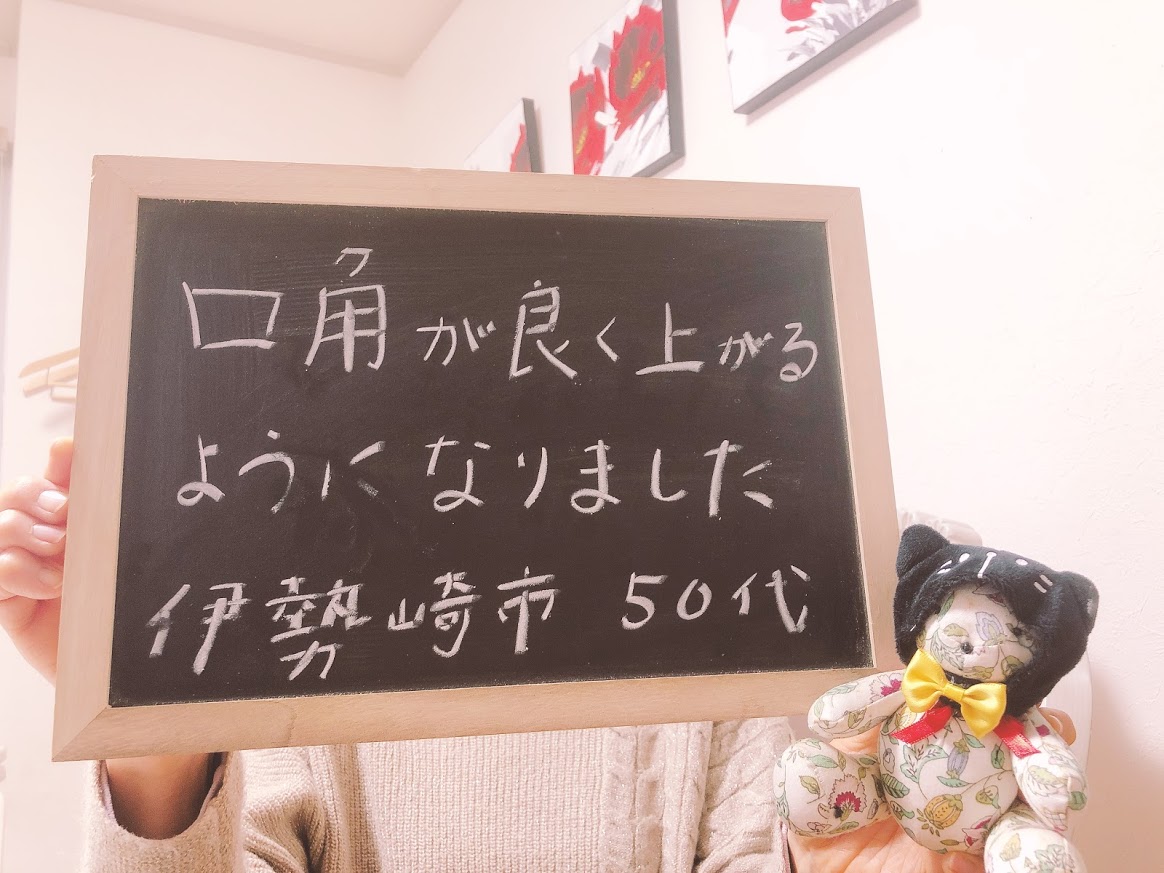 口角が良く上がる
ようになりました
伊勢崎市 50代